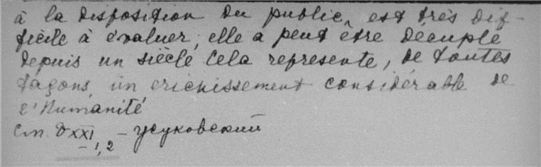 à la disposition du public, est très dif-
ficile à évaluer; elle a peut être décuplé
depuis un siècle Cela represente, de toutes
façons, un erichissement considérable de
l'Humanité
Cm. XXI
-1,2 - усуковский